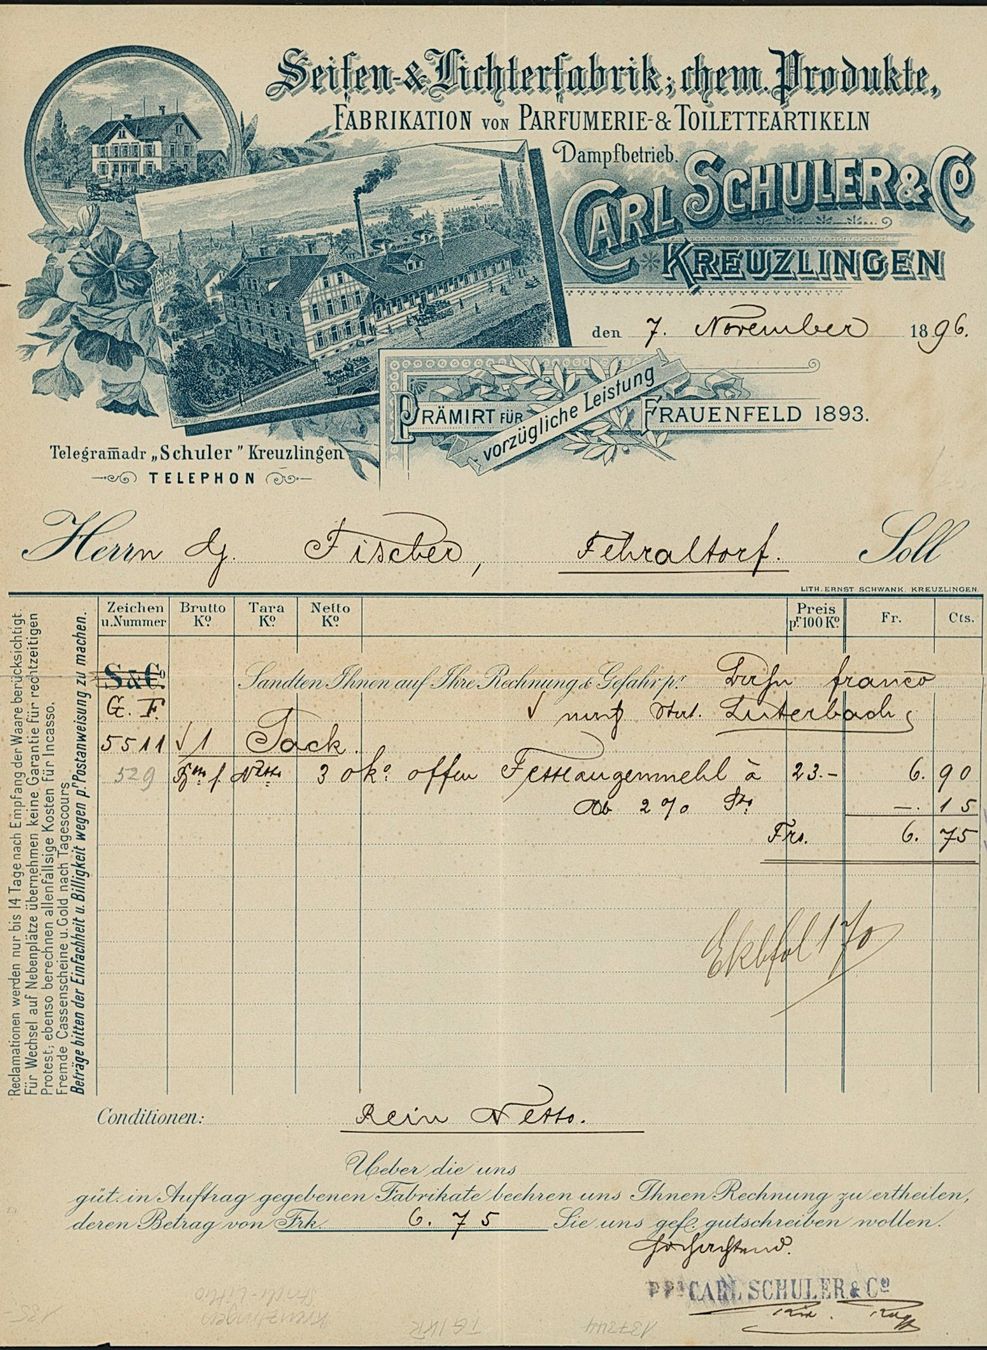 Seifen- & Lichterfabrik, chem. Produkte,
FABRIKATION VON PARFUMERIE- & TOILETTEARTIKELN
Dampfbetrieb.
CARL SCHULER & Co
KREUZLINGEN
den 7. November 1896.
PRÄMIRT FÜR vorzügliche Leistung FRAUENFELD 1893.
Telegramadr „Schuler" Kreuzlingen
TELEPHON
Herrn G. Fischer, Fehraltorf. Soll
LITH. ERNST SCHWANK, KREUZLINGEN.
Zeichen u. Nummer Brutto Ko. Tara Ko. Netto Ko. Preis pr 100 Ko. Fr. Cts.
S & Co Sandten Ihnen auf Ihre Rechnung & Gefahr pr. Bahn franco
G. F. Stat.
5511 1 Sack
529 Netto 30 ko. offen à 23.- 6. 90
Ab 2% -. 15
Frs. 6. 75
1%
Reclamationen werden nur bis 14 Tage nach Empfang der Waare berücksichtigt.
Für Wechsel auf Nebenplätze übernehmen keine Garantie für rechtzeitigen
Protest; ebenso berechnen allenfallsige Kosten für Incasso.
Fremde Cassenscheine u. Gold nach Tagescours
Beträge bitten der Einfachheit u. Billigkeit wegen pr Postanweisung zu machen.
Conditionen: Rein Netto.
Ueber die uns
güt. in Auftrag gegebenen Fabrikate beehren uns Ihnen Rechnung zu ertheilen,
deren Betrag von Frk. 6.75 Sie uns gefl. gutschreiben wollen.
Hochachtend.
ppa CARL SCHULER & Co